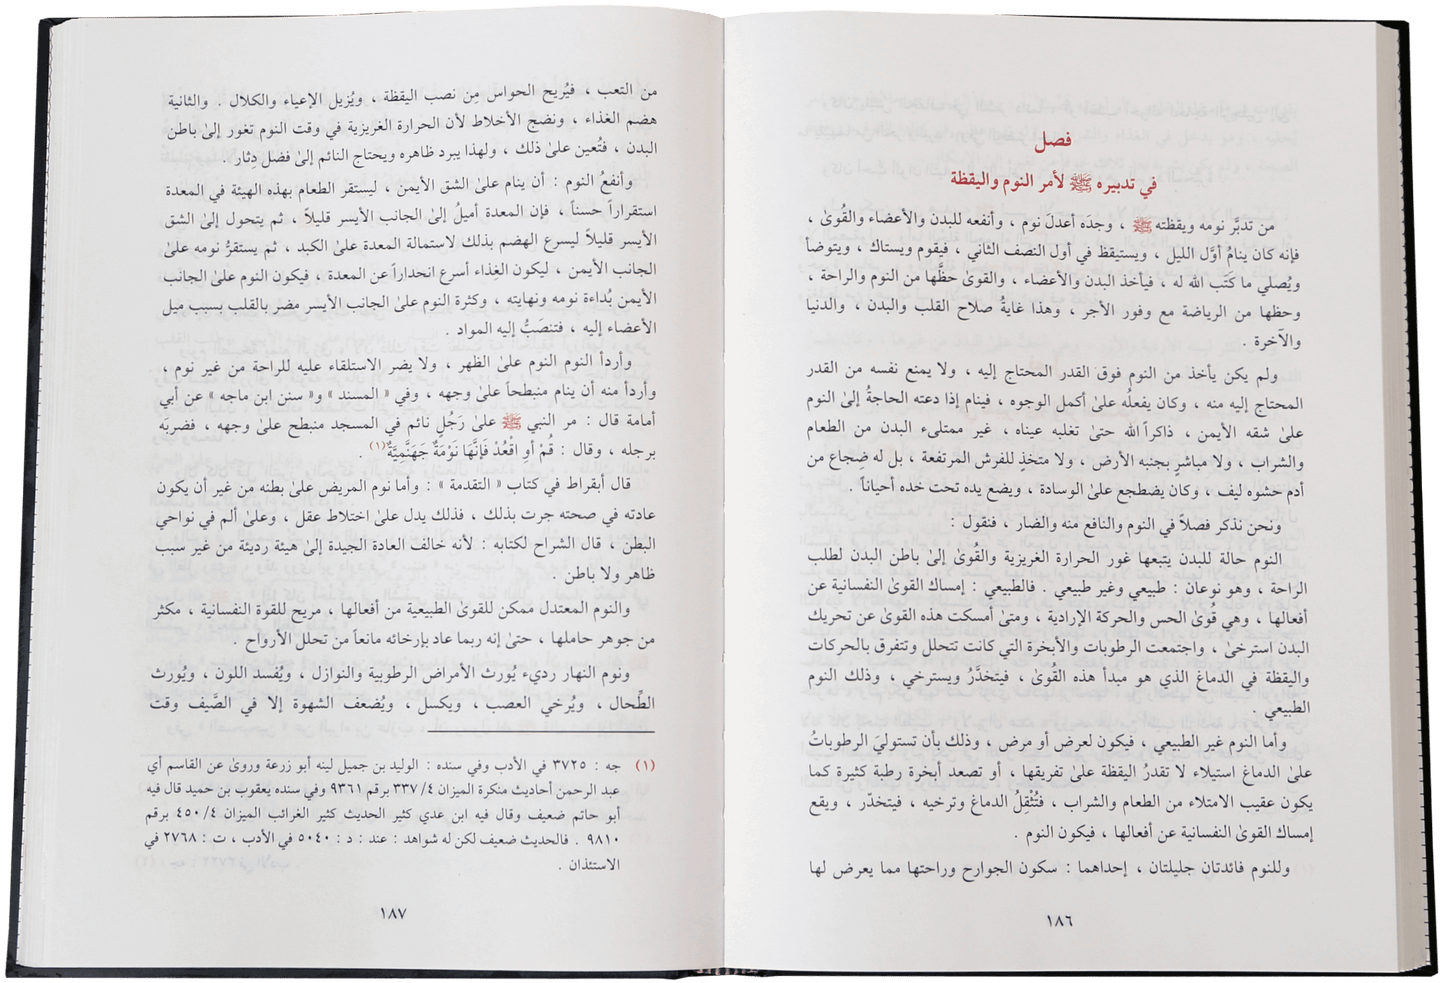 فصل
في تدبيره ﷺ لأمر النوم واليقظة
من تدبَّر نومه ويقظته ﷺ ، وجدَه أعدلَ نوم ، وأنفعه للبدن والأعضاء والقُوىٰ ،
فإنه كان ينامُ أوَّل الليل ، ويستيقظ في أول النصف الثاني ، فيقوم ويستاك ، ويتوضأ
ويُصلي ما كَتَب الله له ، فيأخذ البدن والأعضاء ، والقوىٰ حظَّها من النوم والراحة ،
وحظها من الرياضة مع وفور الأجر ، وهذا غايةُ صلاح القلب والبدن ، والدنيا
والآخرة .
ولم يكن يأخذ من النوم فوق القدر المحتاج إليه ، ولا يمنع نفسه من القدر
المحتاج إليه منه ، وكان يفعلُه علىٰ أكمل الوجوه ، فينام إذا دعته الحاجةُ إلىٰ النوم
علىٰ شقه الأيمن ، ذاكراً الله حتىٰ تغلبه عيناه ، غير ممتلىء البدن من الطعام
والشراب ، ولا مباشرٍ بجنبه الأرض ، ولا متخذٍ للفرش المرتفعة ، بل له ضِجاع من
أدم حشوه ليف ، وكان يضطجع علىٰ الوسادة ، ويضع يده تحت خده أحياناً .
ونحن نذكر فصلاً في النوم والنافع منه والضار ، فنقول :
النوم حالة للبدن يتبعها غور الحرارة الغريزية والقُوىٰ إلىٰ باطن البدن لطلب
الراحة ، وهو نوعان : طبيعي وغير طبيعي . فالطبيعي : إمساك القوىٰ النفسانية عن
أفعالها ، وهي قُوىٰ الحس والحركة الإرادية ، ومتىٰ أمسكت هذه القوىٰ عن تحريك
البدن استرخىٰ ، واجتمعت الرطوبات والأبخرة التي كانت تتحلل وتتفرق بالحركات
واليقظة في الدماغ الذي هو مبدأ هذه القُوىٰ ، فيتخدَّرُ ويسترخي ، وذلك النوم
الطبيعي .
وأما النوم غير الطبيعي ، فيكون لعرض أو مرض ، وذلك بأن تستوليَ الرطوباتُ
علىٰ الدماغ استيلاء لا تقدرُ اليقظة علىٰ تفريقها ، أو تصعد أبخرة رطبة كثيرة كما
يكون عقيب الامتلاء من الطعام والشراب ، فتُثْقِلُ الدماغ وترخيه ، فيتخدّر ، ويقع
إمساك القوىٰ النفسانية عن أفعالها ، فيكون النوم .
وللنوم فائدتان جليلتان ، إحداهما : سكون الجوارح وراحتها مما يعرض لها
١٨٦
من التعب ، فيُريح الحواس مِن نصب اليقظة ، ويُزيل الإعياء والكلال . والثانية
هضم الغذاء ، ونضج الأخلاط لأن الحرارة الغريزية في وقت النوم تغور إلىٰ باطن
البدن ، فتُعين علىٰ ذلك ، ولهذا يبرد ظاهره ويحتاج النائم إلىٰ فضل دِثار .
وأنفعُ النوم : أن ينام علىٰ الشق الأيمن ، ليستقر الطعام بهذه الهيئة في المعدة
استقراراً حسناً ، فإن المعدة أميلُ إلىٰ الجانب الأيسر قليلاً ، ثم يتحول إلىٰ الشق
الأيسر قليلاً ليسرع الهضم بذلك لاستمالة المعدة علىٰ الكبد ، ثم يستقرُّ نومه علىٰ
الجانب الأيمن ، ليكون الغِذاء أسرع انحداراً عن المعدة ، فيكون النوم علىٰ الجانب
الأيمن بُداءة نومه ونهايته ، وكثرة النوم علىٰ الجانب الأيسر مضر بالقلب بسبب ميل
الأعضاء إليه ، فتنصَبُّ إليه المواد .
وأردأ النوم النوم علىٰ الظهر ، ولا يضر الاستلقاء عليه للراحة من غير نوم ،
وأردأ منه أن ينام منبطحاً علىٰ وجهه ، وفي « المسند » و« سنن ابن ماجه » عن أبي
أمامة قال : مر النبي ﷺ علىٰ رَجُلٍ نائم في المسجد منبطح علىٰ وجهه ، فضربَه
برجله ، وقال : قُمْ أوِ اقْعُدْ فَإِنَّهَا نَوْمَةٌ جَهَنَّمِيَّةٌ(١) .
قال أبقراط في كتاب « التقدمة » : وأما نوم المريض علىٰ بطنه من غير أن يكون
عادته في صحته جرت بذلك ، فذلك يدل علىٰ اختلاط عقل ، وعلىٰ ألم في نواحي
البطن ، قال الشراح لكتابه : لأنه خالف العادة الجيدة إلىٰ هيئة رديئة من غير سبب
ظاهر ولا باطن .
والنوم المعتدل ممكن للقوىٰ الطبيعية من أفعالها ، مريح للقوة النفسانية ، مكثر
من جوهر حاملها ، حتىٰ إنه ربما عاد بإرخائه مانعاً من تحلل الأرواح .
ونوم النهار رديء يُورث الأمراض الرطوبية والنوازل ، ويُفسد اللون ، ويُورث
الطِّحال ، ويُرخي العصب ، ويكسل ، ويُضعف الشهوة إلا في الصَّيف وقت
(١) جه : ٣٧٢٥ في الأدب وفي سنده : الوليد بن جميل لينه أبو زرعة وروىٰ عن القاسم أي
عبد الرحمن أحاديث منكرة الميزان ٤/ ٣٣٧ برقم ٩٣٦١ وفي سنده يعقوب بن حميد قال فيه
أبو حاتم ضعيف وقال فيه ابن عدي كثير الحديث كثير الغرائب الميزان ٤/ ٤٥٠ برقم
٩٨١٠ . فالحديث ضعيف لكن له شواهد : عند : د : ٥٠٤٠ في الأدب ، ت : ٢٧٦٨ في
الاستئذان .
١٨٧